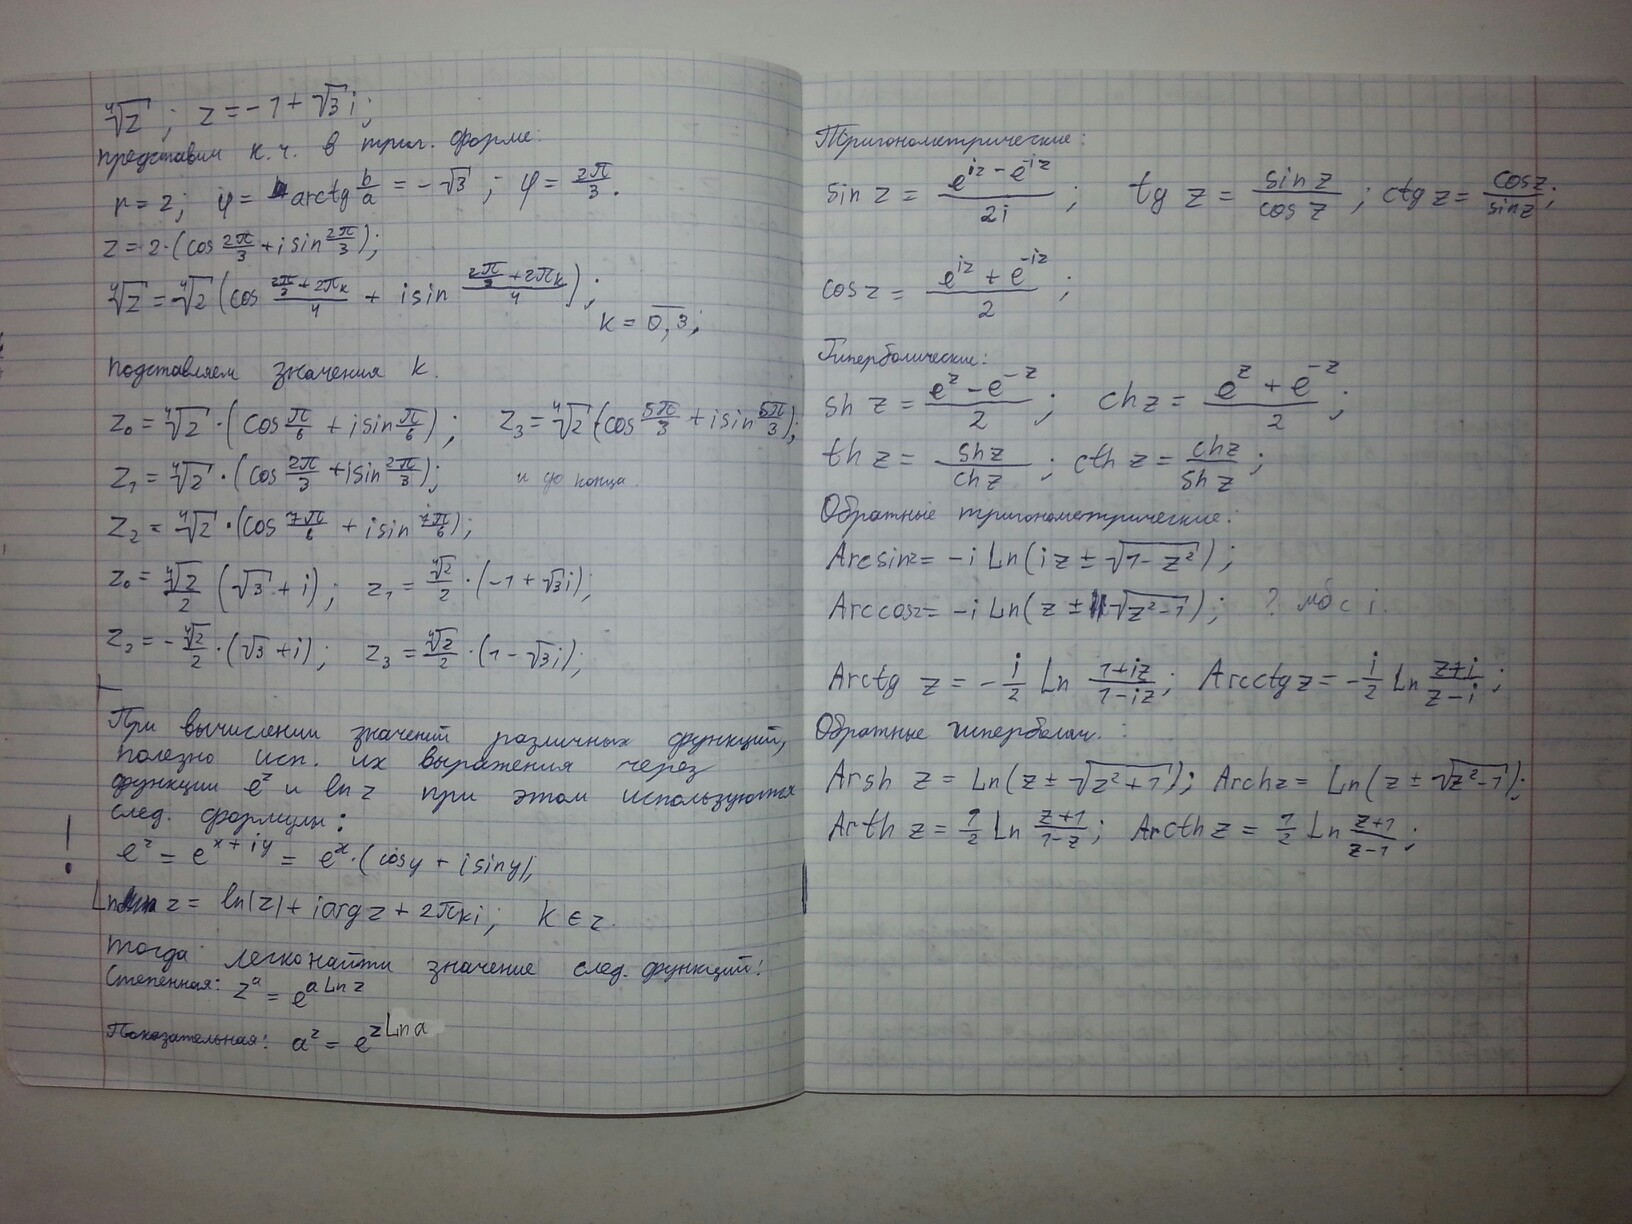 ∜z ; z = -1 + √3 i;
представим к.ч. в триг. форме:
r = 2; φ = arctg b/a = -√3 ; φ = 2π/3.
z = 2·(cos 2π/3 + i sin 2π/3);
∜z = ∜2 (cos (2π/3 + 2πk)/4 + i sin (2π/3 + 2πk)/4) ;
k = 0,3;
подставляем значения k.
z₀ = ∜2 ·(cos π/6 + i sin π/6); z₃ = ∜2 (cos 5π/3 + i sin 5π/3);
z₁ = ∜2 ·(cos 2π/3 + i sin 2π/3); и до конца
z₂ = ∜2 ·(cos 7π/6 + i sin 7π/6);
z₀ = ∜2/2 (√3 + i); z₁ = ∜2/2 ·(-1 + √3i);
z₂ = -∜2/2 ·(√3 + i); z₃ = ∜2/2 ·(1 - √3i);
При вычислении значений различных функций,
полезно исп. их выражения через
функции eᶻ и ln z при этом используются
след. формулы:
! eᶻ = e^(x+iy) = eˣ·(cos y + i sin y);
Ln z = ln|z| + i arg z + 2πki; k ∈ z.
тогда легко найти значение след. функций:
Степенная: zᵃ = e^(a Ln z)
Показательная: aᶻ = e^(z Ln a)
Тригонометрические:
sin z = (e^(iz) - e^(-iz))/2i ; tg z = sin z/cos z ; ctg z = cos z/sin z ;
cos z = (e^(iz) + e^(-iz))/2 ;
Гиперболические:
sh z = (e^z - e^(-z))/2 ; ch z = (e^z + e^(-z))/2 ;
th z = sh z/ch z ; cth z = ch z/sh z ;
Обратные тригонометрические:
Arcsin z = -i Ln(iz ± √(1-z²)) ;
Arccos z = -i Ln(z ± √(z²-1)) ; ? мб с i.
Arctg z = -i/2 Ln (1+iz)/(1-iz) ; Arcctg z = -i/2 Ln (z+i)/(z-i) ;
Обратные гиперболич. :
Arsh z = Ln(z ± √(z²+1)); Arch z = Ln(z ± √(z²-1));
Arth z = 1/2 Ln (z+1)/(1-z) ; Arcth z = 1/2 Ln (z+1)/(z-1) ;